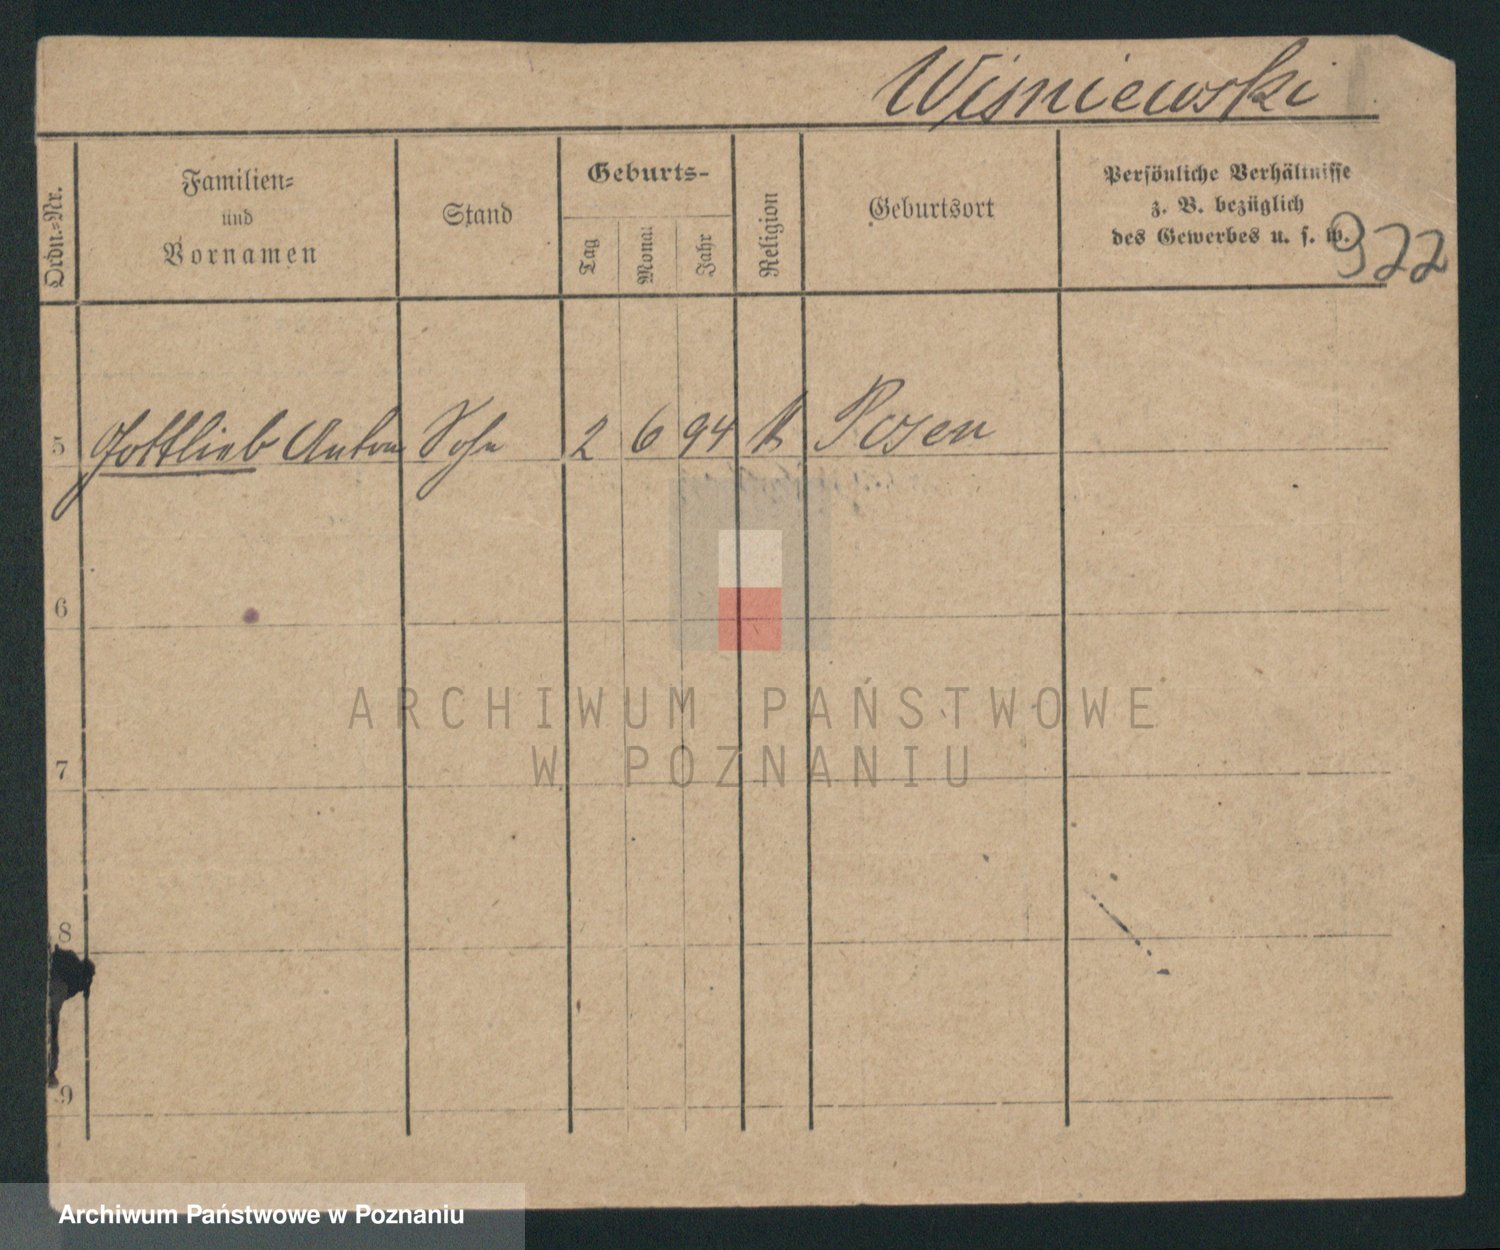 Wiśniewski
Ordn.-Nr.
Familien-
und
Vornamen
Stand
Geburts-
Tag
Monat
Jahr
Religion
Geburtsort
Persönliche Verhältnisse
z. B. bezüglich
des Gewerbes u. s. w.
922
5 Gottlieb Anton Sohn 2 6 94 k Posen
6
ARCHIWUM PAŃSTWOWE
W POZNANIU
7
8
9
Archiwum Państwowe w Poznaniu